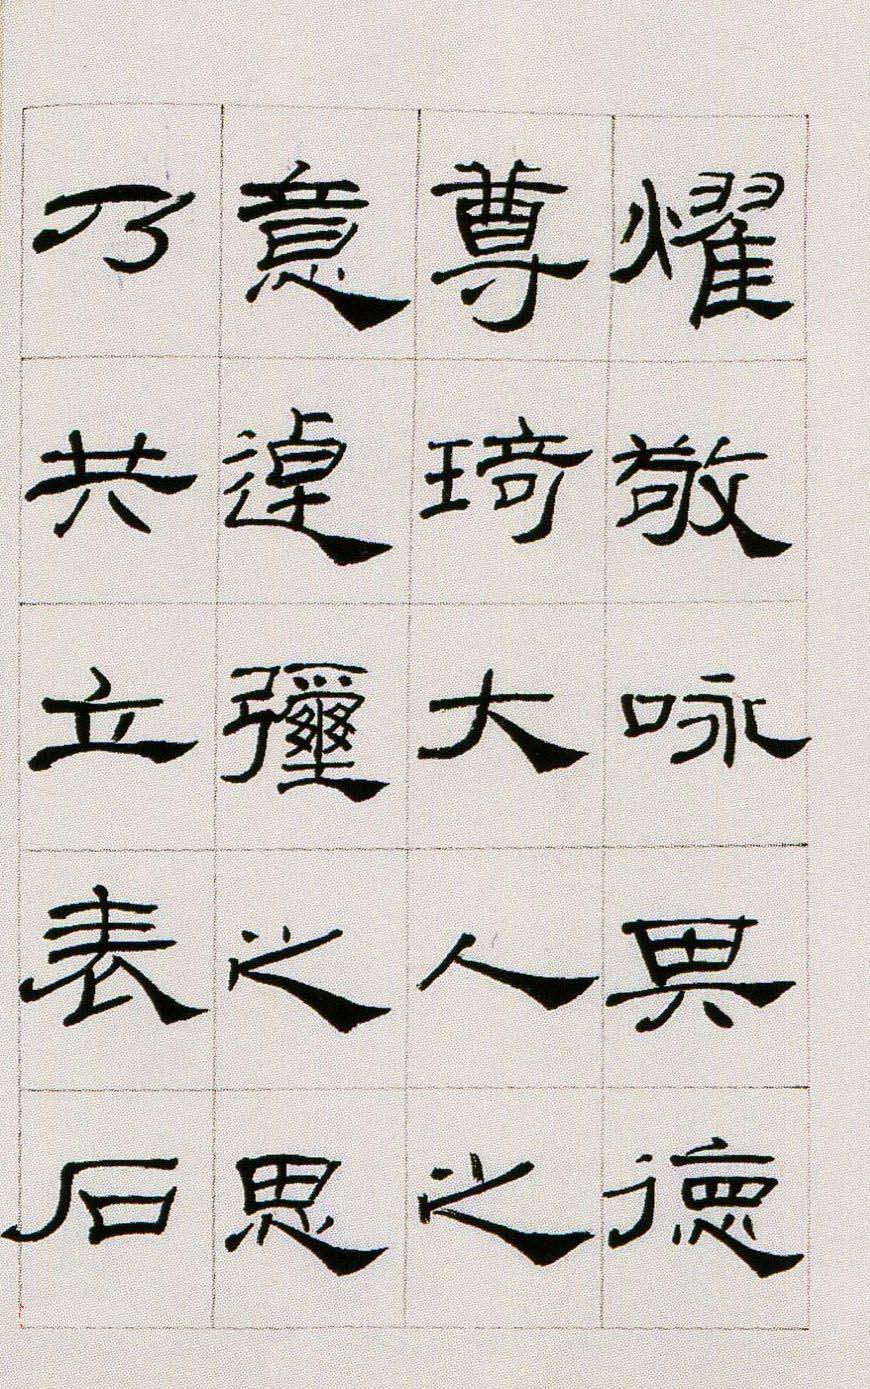 燿敬咏其德
尊琦大人之
意逴彌之思
乃共立表石